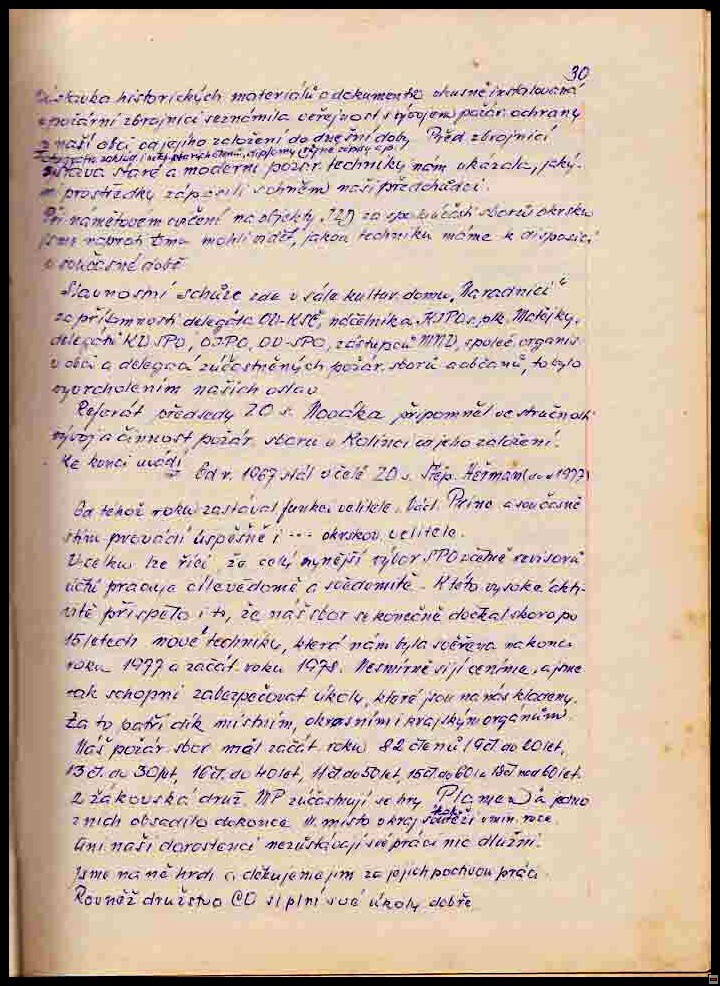 30
Výstavka historických materiálů a dokumentů vkusně instalovaná
v požární zbrojnici seznámila veřejnost s vývojem požár. ochrany
v naší obci od jejího založení do dnešní doby. Před zbrojnicí
diplomy
výstava staré a moderní požár. techniky nám ukázala, jaký-
mi prostředky zápasili s ohněm naši předchůdci.
Při námětovém cvičení na objekty JZD za spoluúčasti sborů okrsku
jsme naproti tomu mohli vidět, jakou techniku máme k disposici
v současné době.
Slavnostní schůze zde v sále kultur. domu „Na radnici"
za přítomnosti delegáta OV-KSČ, náčelníka KIPO s. plk. Matějky,
delegátů KV SPO, OIPO, OV-SPO, zástupců MNV, společ. organis.
v obci a delegací zúčastněných požár. sborů a občanů, to bylo
vyvrcholením našich oslav.
Referát předsedy ZO s. Nováka připomněl ve stručnosti
vývoj a činnost požár. sboru v Kolinci od jeho založení.
Ke konci uvádí
Od r. 1967 stál v čele ZO s. Štěp. Heřman 1977)
Od téhož roku zastával funkci velitele Václ. Princ a současně
s tím provádí úspěšně i --- okrskov. velitele.
V celku lze říci, že celý nynější výbor SPO včetně revisorů
účtů pracuje cílevědomě a svědomitě. K této vysoké akti-
vitě přispělo i to, že náš sbor se konečně dočkal skoro po
15 letech nové techniky, která nám byla svěřena na konci
roku 1977 a začát. roku 1978. Nesmírně si jí ceníme, a jsme
tak schopni zabezpečovat úkoly, které jsou na nás kladeny.
Za to patří dík místním, okresním i krajským orgánům.
Náš požár. sbor měl začát. roku 82 členů 19 čl. do 20 let,
13 čl. do 30 let, 16 čl. do 40 let, 11 čl. do 50 let, 15 čl. do 60 a 18 čl. nad 60 let.
2 žákovská druž. MP zúčastňují se hry „Plamen" a jedno
z nich obsadilo dokonce III. místo v kraj. soutěži v min. roce.
Ani naši dorostenci nezůstávají své práci nic dlužni.
Jsme na ně hrdi a děkujeme jim za jejich poctivou práci.
Rovněž družstvo CO si plní své úkoly dobře.